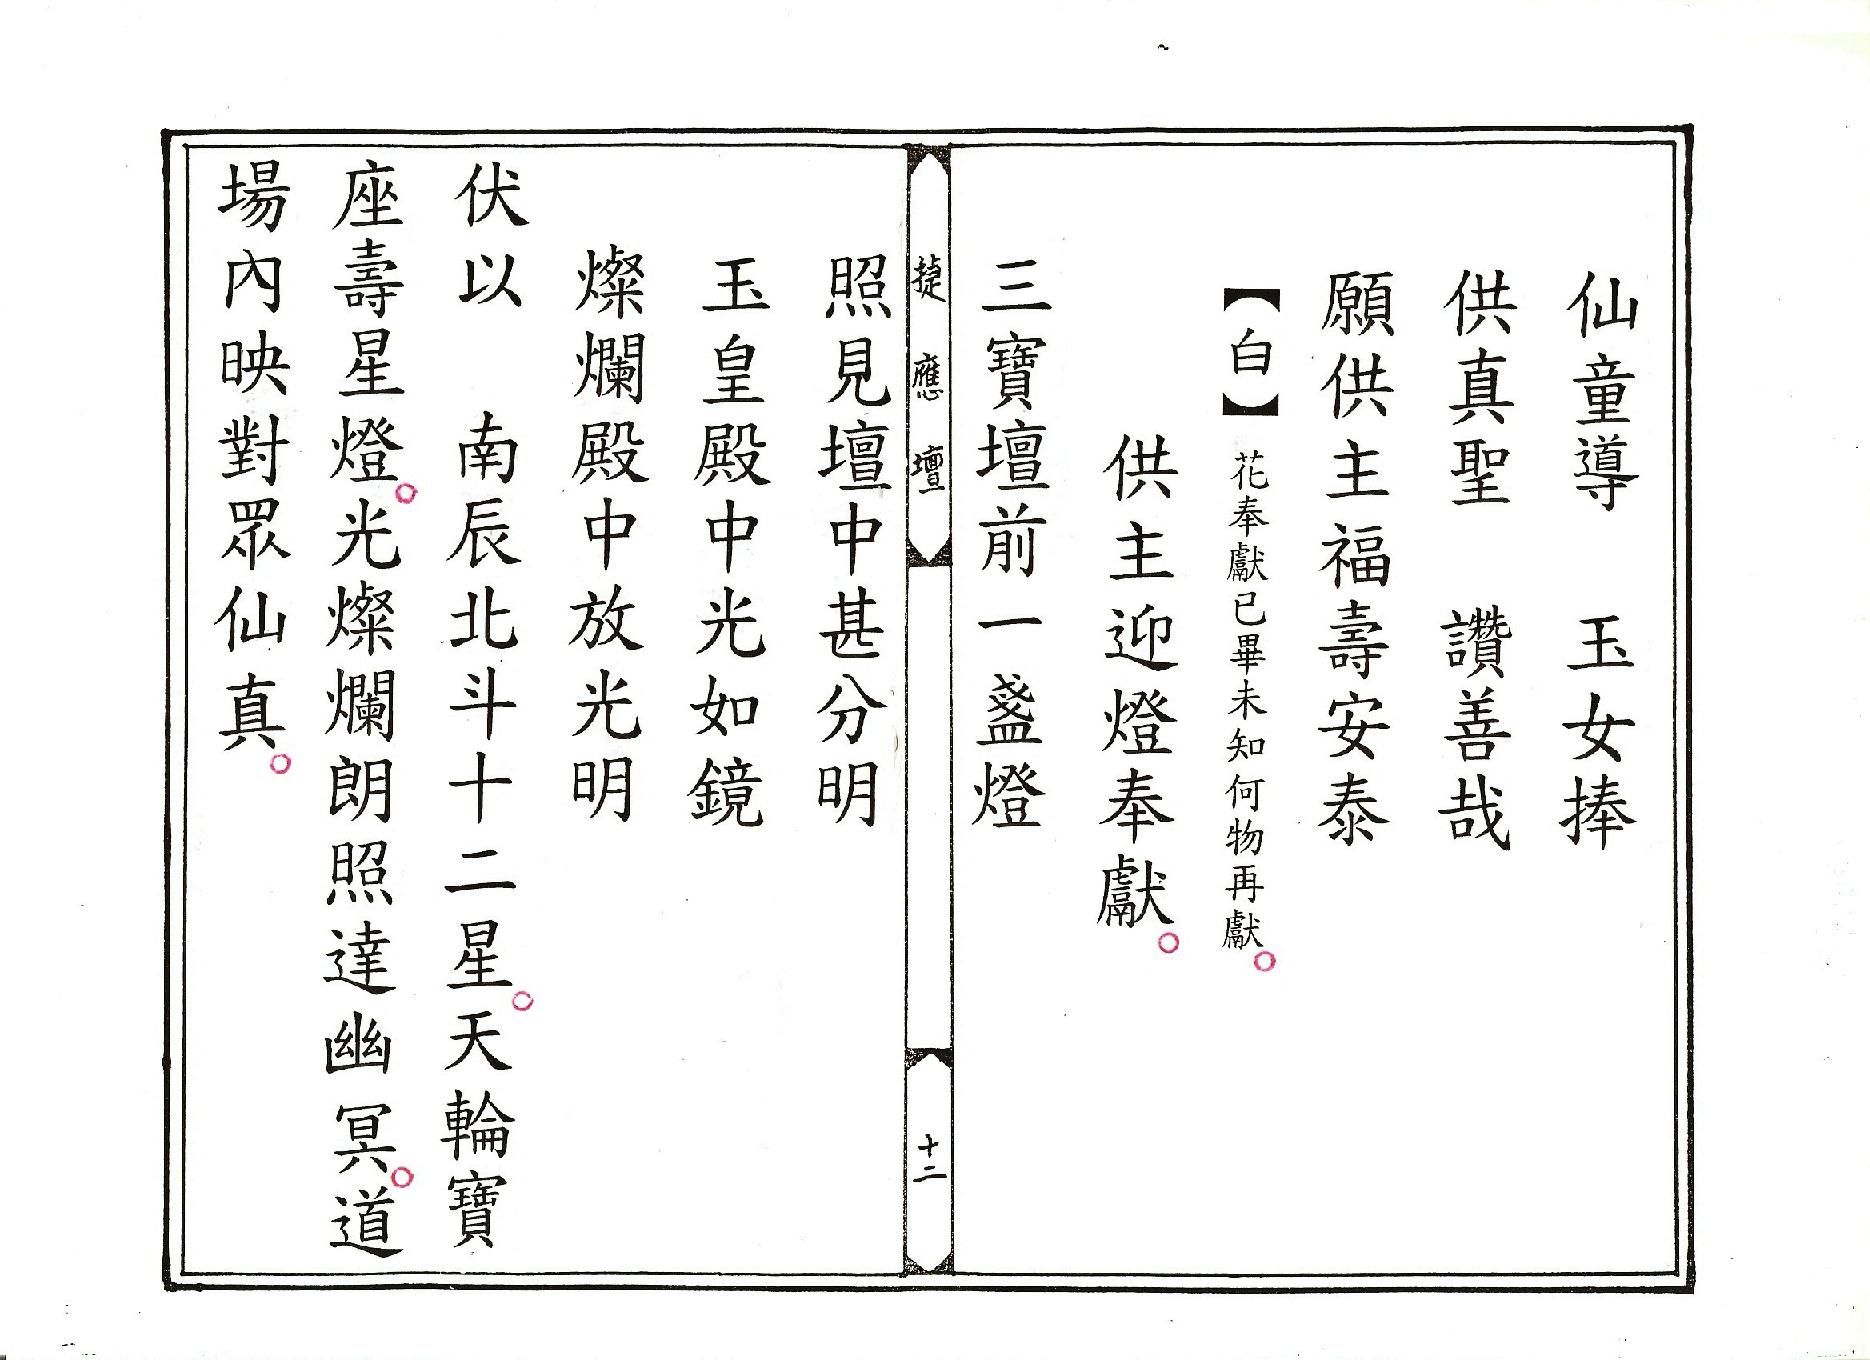 仙童導　玉女捧
供真聖　讚善哉
願供主福壽安泰
【白】花奉獻已畢未知何物再獻。
供主迎燈奉獻。
三寶壇前一盞燈
捷應壇
十二
照見壇中甚分明
玉皇殿中光如鏡
燦爛殿中放光明
伏以　南辰北斗十二星。天輪寶
座壽星燈。光燦爛朗照達幽冥。道
場內映對眾仙真。